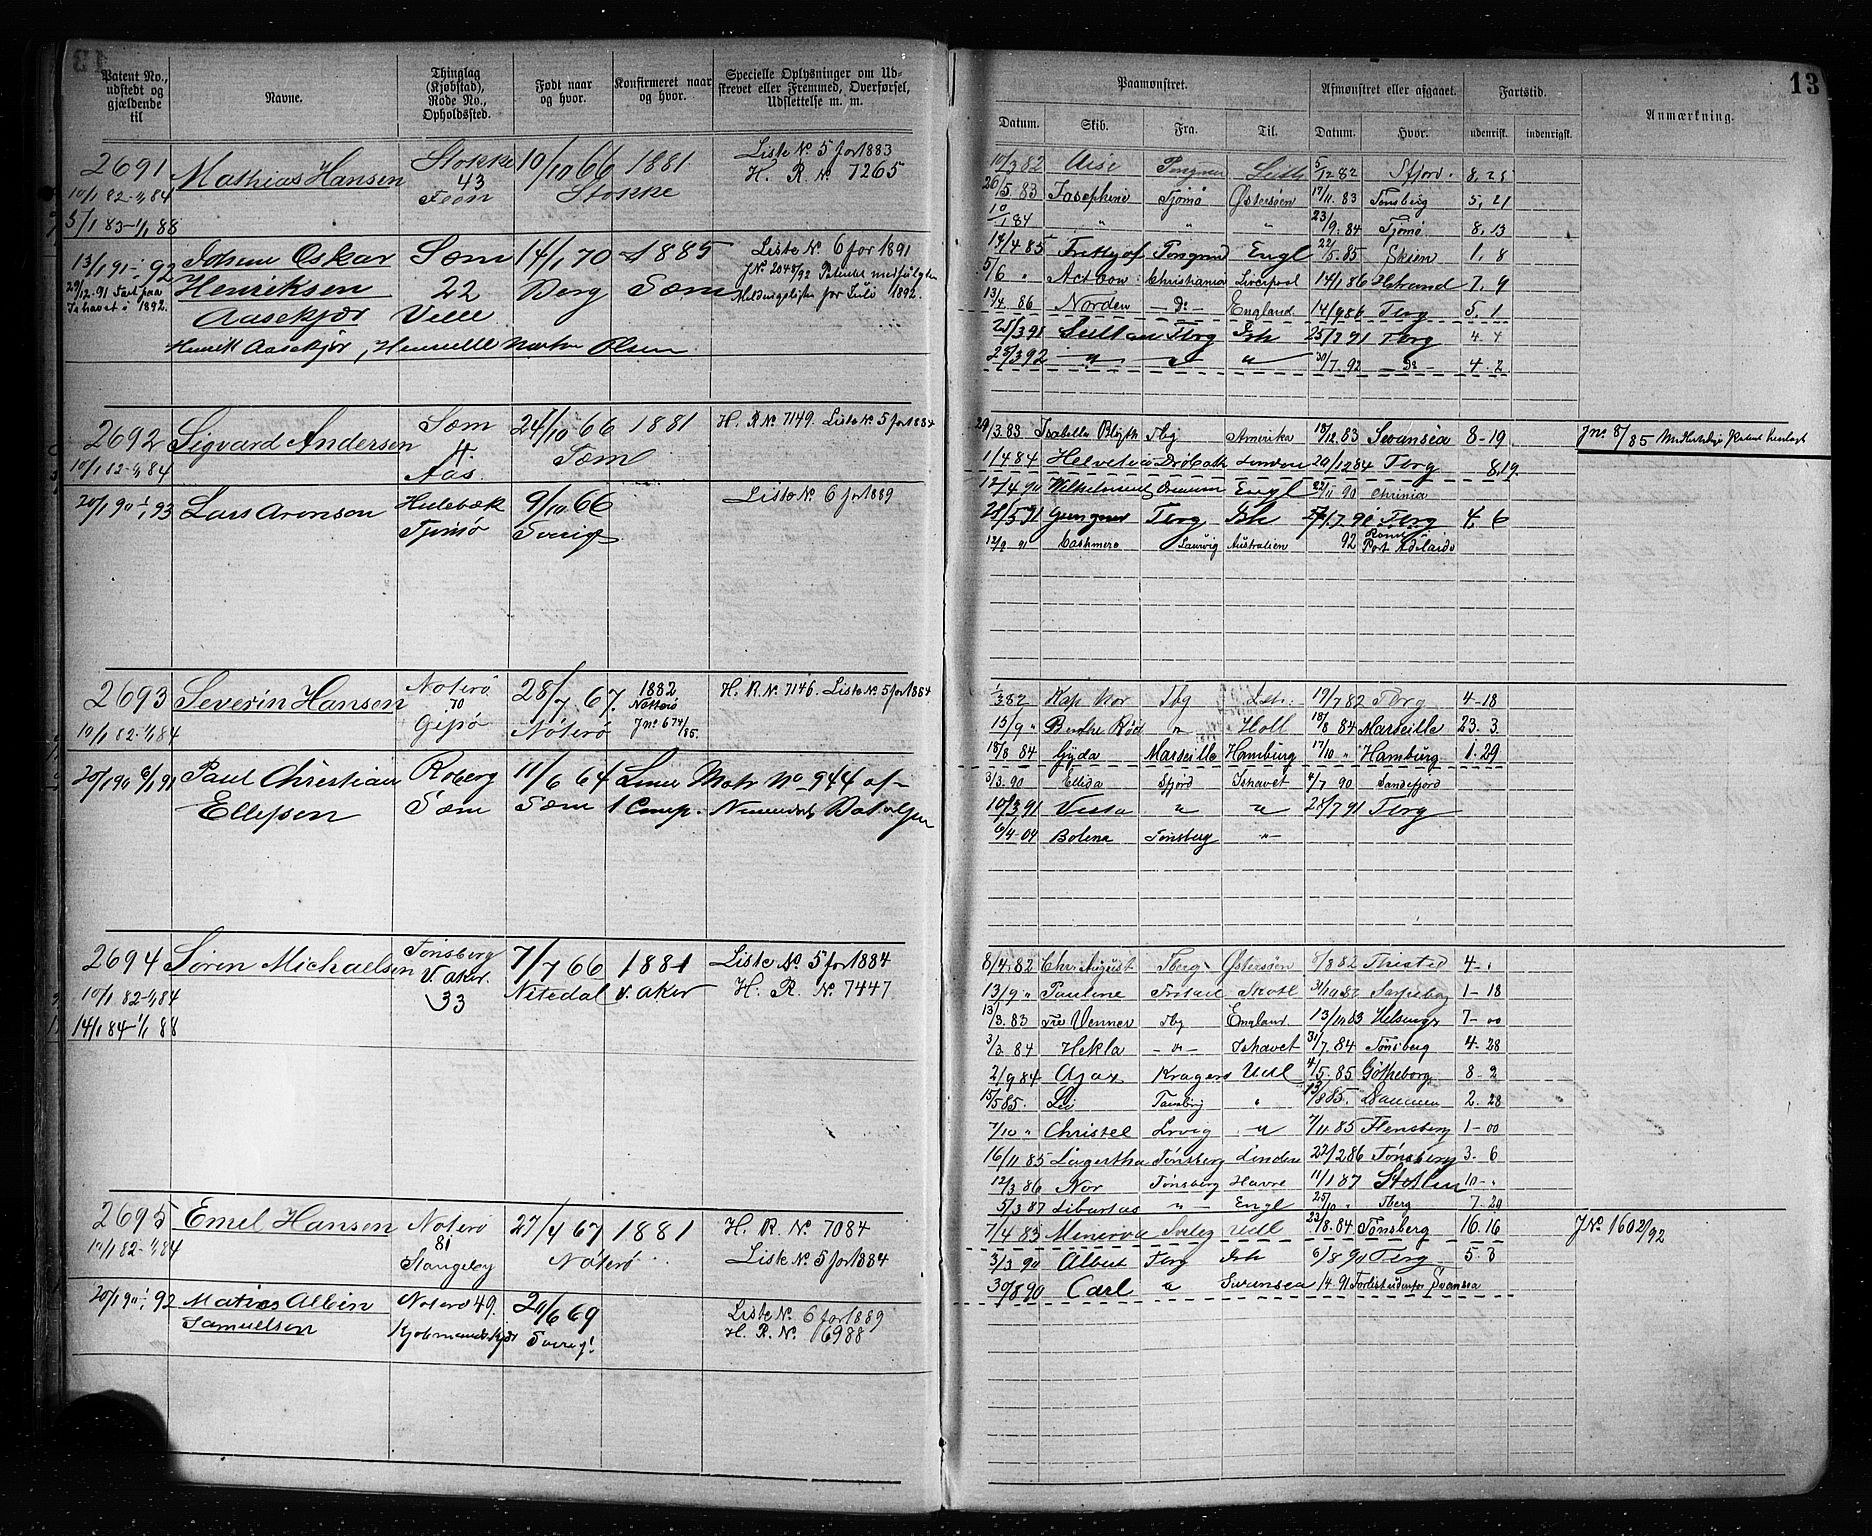 13
Patent No., udstedt og gjældende til
Navne.
Thinglag (Kjøbstad), Rode No., Opholdssted.
Født naar og hvor.
Konfirmeret naar og hvor.
Specielle Oplysninger om Udskrevet eller Fremmed, Overførsel, Udslettelse m. m.
2691 Mathias Hansen Stokke 10/10 66 1881 Liste No 5 for 1883
10/1 82-1/1 84 43 Stokke H. R. No 7265
Feen
5/1 83-1/1 88
13/1 91 1/1 92 Johan Oskar Sæm 14/1 70 1885 Liste No 6 for 1891
Henriksen 22 Berg Sæm
29/12-91 Fart paa Ishavet i 1892.
JNo 2048/92 Patentet medfulgte Meldingslisten for Juli 1892.
Aasekjær Velle
Henrik Aasekjær, Olsen
2692 Sigvard Andersen Sæm 24/10 66 1881 H. R No 7149. Liste No 5 for 1884
10/1 82-1/1 84 4. Sæm
Aas.
20/1 90 1/1 93 Lars Aronson Hulebæk 9/10 66 Liste No 6 for 1889
Tjømø Sverige
2693 Severin Hansen Nøterø 28/7 67. 1882 H. R. No 7146. Liste No 5 for 1884
10/1 82-1/1 84 70 Nøterø Nøtterø
Gipø JNo 674/85.
20/1 90 6/1 91 Paul Christian Roberg 11/6 64 Linie Matr No 944 af
Ellefsen Sæm Sæm 1 Comp.
2694 Søren Michaelsen Tønsberg 7/7 66 1881 Liste No 5 for 1884
10/1 82-1/1 84 V. aker. Nitedal V. aker H. R. No 7447
33
14/1 84-1/1 88
2695 Emil Hansen Nøterø 27/4 67 1881 H. R. No 7084
10/1 82-1/1 84 81 Nøterø Liste No 5 for 1884
Stangeby
20/1 90 1/1 92 Matias Albin Nøterø 49. 20/6 69 Liste No 6 for 1889
Samuelson Kjøbmandskjær Sverig! H. R. No 6988
13
Paamønstret.
Afmønstret eller afgaaet.
Fartstid.
Anmærkning.
Datum. Skib. Fra. Til. Datum. Hvor. udenrigsk. indenrigsk.
10/3 82 Leith 5/12 82 Sfjord. 8, 25
26/5. 83 Josephine Tjømø Østersøen 17/11. 83 Tønsberg 5, 21
10/1 84 " " " 23/9. 84 Tjømø 8, 13
14/4 85 Engl 22/5. 85 Skien 1, 8
5/6 " Christiania Liverpool 14/1 86 Hstrand 7. 9
13/4. 86 Norden Do England 14/9 86 Tbrg 5. 1
25/3 91 Sultan Tbrg Ish 25/7 91 Tbrg 4. 4
28/3 92 " " " 30/7. 92 Do 4. 2
29/3. 83 Isabella Blyth Tbg Amerika 18/12. 83 Swansea 8-19
JNo. 8/85
1/4 84 Helvetia Drøbak London 20/12 84 Tbrg 8,19
12/4 90 Engl 22/11 90 Chrinia
28/5 91 Gungner Tbrg Ish 7 91 Tbrg 4. 6
12/9 " Cashmere Laurvig Australien 92 Rømt Port Adelaide
1/3 82 Kap Nor Tbg Ish: 19/7 82 Tbrg 4-18
15/9 " Holl 18/8 84 Marseille 23. 3
18/8 84 Gyda Marseille Hamburg 17/10 " Hamburg 1. 29
3/3. 90 Ellida Sfjord Ishavet 4/7 90 Sandefjord
10/3 91 Vesta " " 28/7 91 Tbrg
6/4 04 Bolena Tønsberg "
8/4. 82 Chr. August Tberg Østersøen 8/8 82 Thisted 4-.
13/9 " Pauline Skotl 31/10 82 Sarpsborg 1-18
13/3. 83 Tre Venner Tbg England 13/10 83 Helsingør 7-00
3/3. 84 Hekla " Ishavet 31/7. 84 Tønsberg 4-28
2/9 84 Ajax Kragerø Udl 4/5. 85 Gøtheborg 8-2
15/5 85. Tønsberg " 13/8 85. Drammen 2. 28
7/10 " Christel Lrvig " 7/11. 85 Flensberg 1-00
16/11 85 Lagertha Tønsberg London 22/2 86 Tønsberg 3. 6
12/3 86 Nor Tønsberg Havre 11/1 87 10-.
5/3 87 Libertas " Engl 25/10 " Tberg 7. 20
7/4 83 Minerva Udl 23/8. 84 Tønsberg 16. 16 JNo. 1602/92
3/3 90 Albert Tbrg Ish 6/8 90 Tbrg 5. 3
30/8 90 Carl " Swansea 1/4 91 Forlist udenfor Svansea